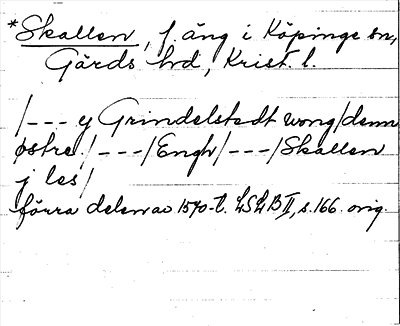 *Skallen, f. äng i Köpinge sn,
Gärds hd, Krist. l.
/--- y Grindelstadt wong/denn
østre/---/Engh/---/Skallen
j les/
förra delen av 1570-t. LSLB II, s. 166 orig.